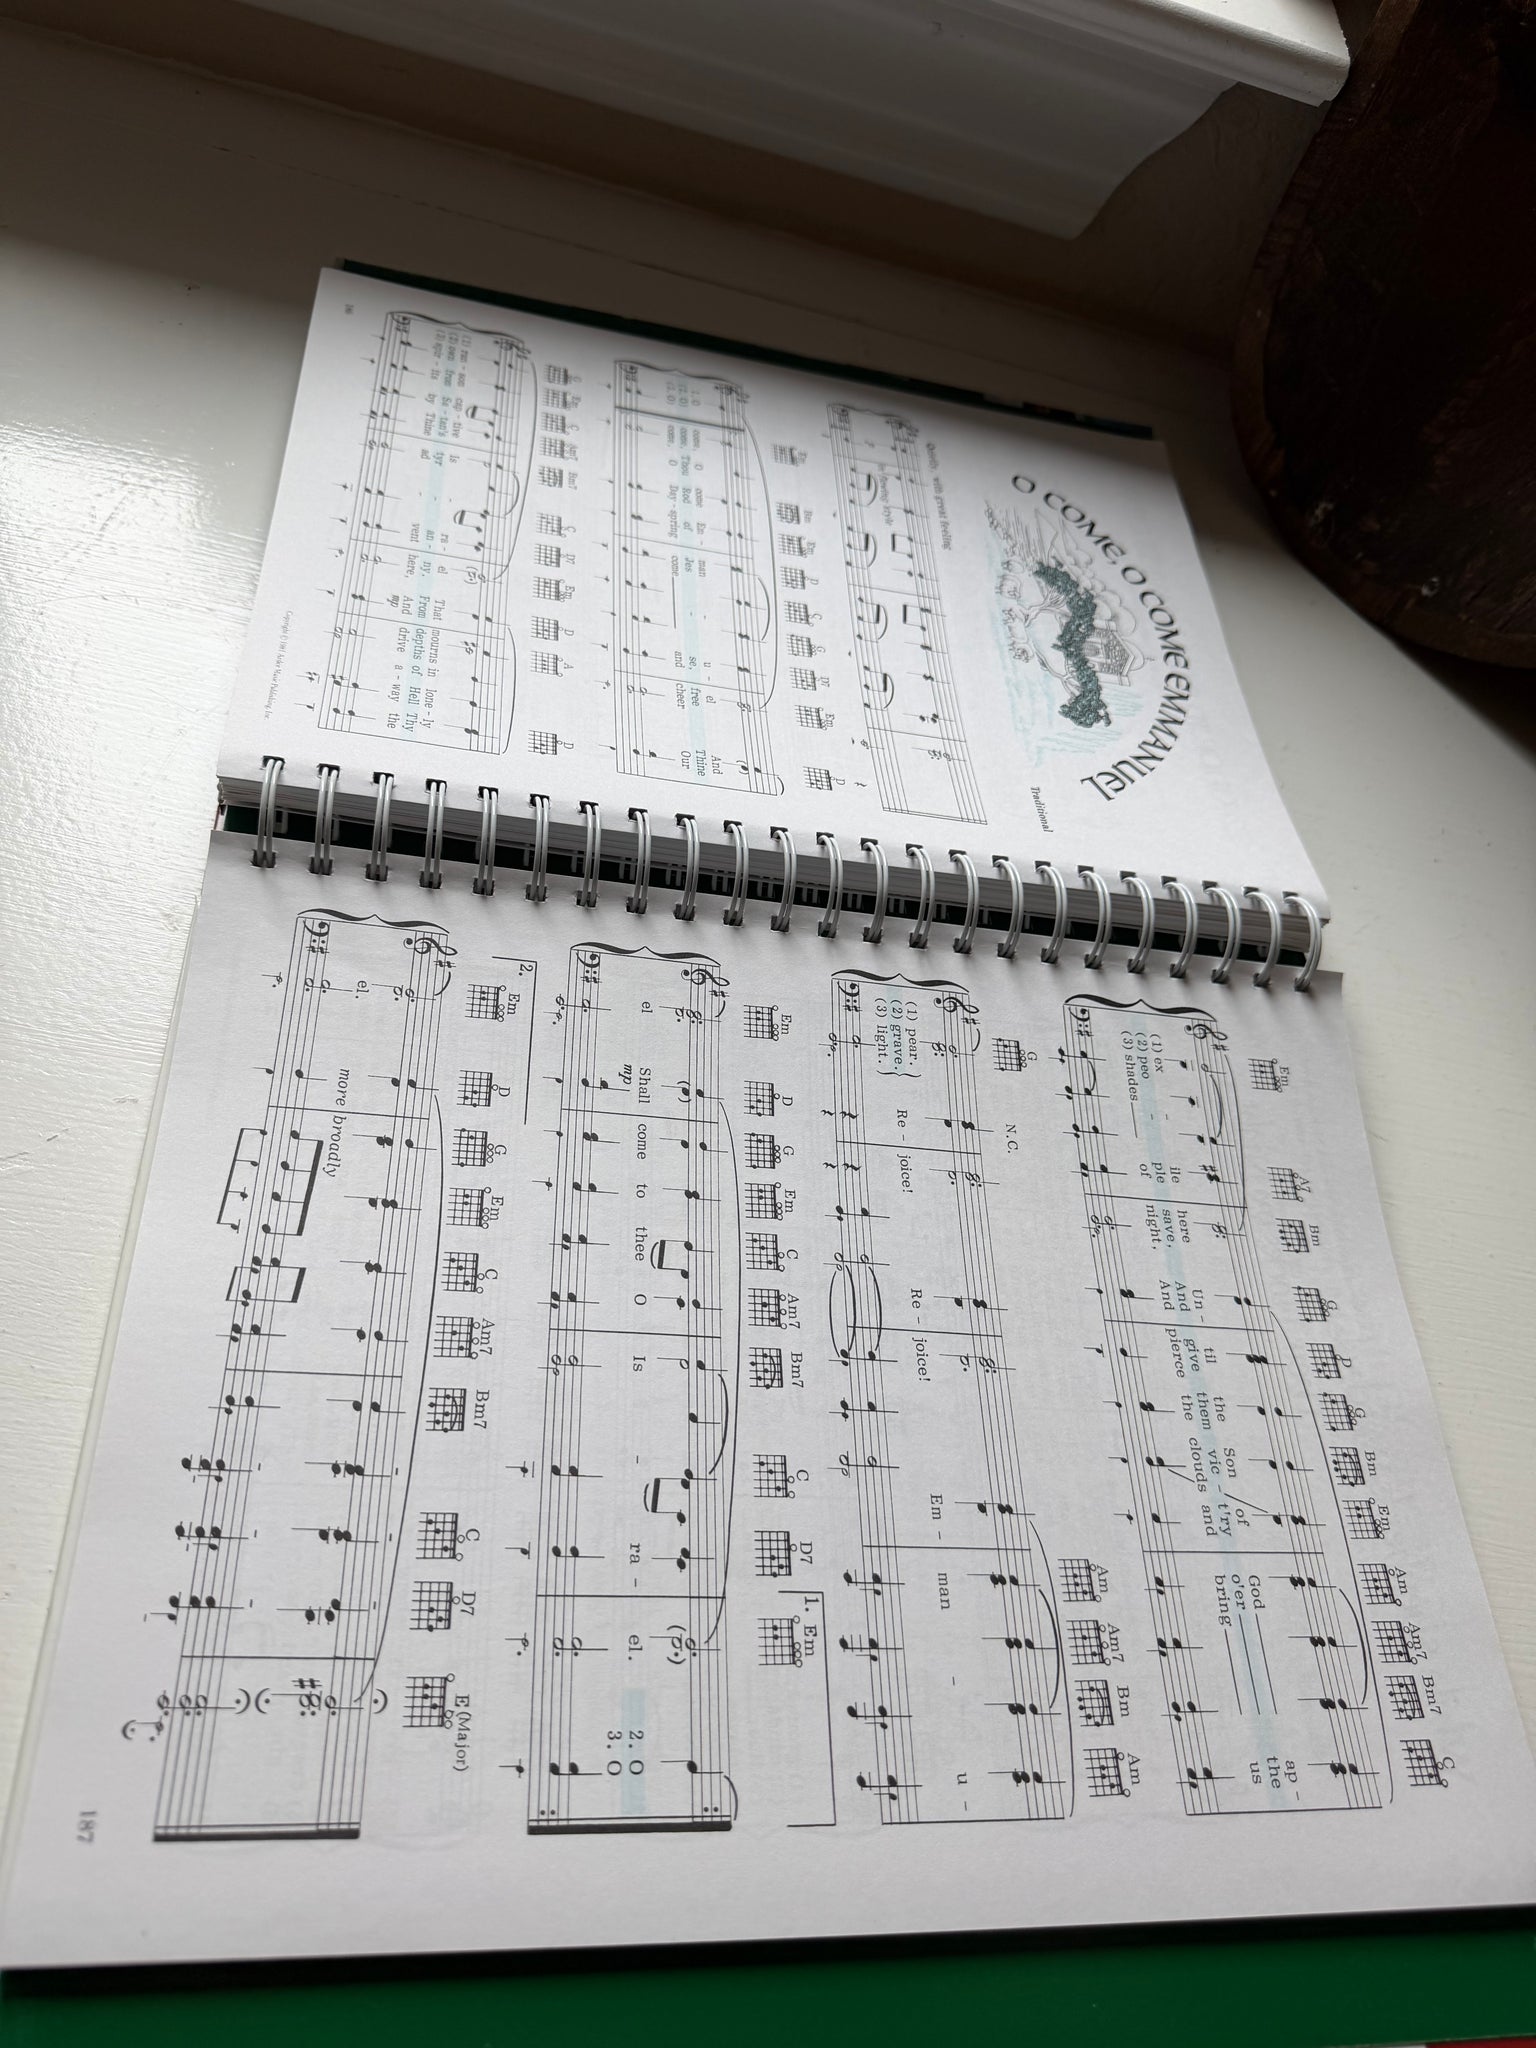 O COME, O COME EMMANUEL
Traditional
Quietly, with great feeling
Em Bm Em D C G D7 Em D
1. O come, O come Em - man - u - el And
(2. O) come, Thou Rod of Jes - se, free Thine
(3. O) come, O Day - spring come and cheer Our
G Em C Am7 Bm7 C D7 Em D A D
(1) ran - som cap - tive Is - ra - el That mourns in lone - ly
(2) own from Sa - tan's tyr - an - ny. From depths of Hell Thy
(3) spir - its by Thine ad - vent here, And drive a - way the
mp
186
Copyright © 1981
Em A7 Bm G D G Bm Em Am Am7 Bm7 C
(1) ex - ile here Un - til the Son of God ap -
(2) peo - ple save, And give them vic - t'ry o'er the
(3) shades of night, And pierce the clouds and bring us
G N.C. Am Am7 Bm Am
(1) pear.
(2) grave. Re - joice! Re - joice! Em - man - u -
(3) light.
1. Em
Em D G Em C Am7 Bm7 C D7
el Shall come to thee O Is - ra - el. 2. O
3. O
mp
2.
Em D G Em C Am7 Bm7 C D7 E(Major)
el.
more broadly
187